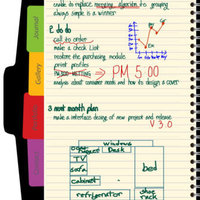 unable to replace merging algorithm its grouping
always simple is a winner
2. do do
call to order
make a check list
restore the purchasing module
print profiles
PM 5:00
analysis about consumer needs and how its design a cover
3 next month plan
make a interface desing of new project and release
V 3.0
windows
Desk
TV
sofa
cabinet
bed
refrigerator
shoe
rack
Journal
Gallery